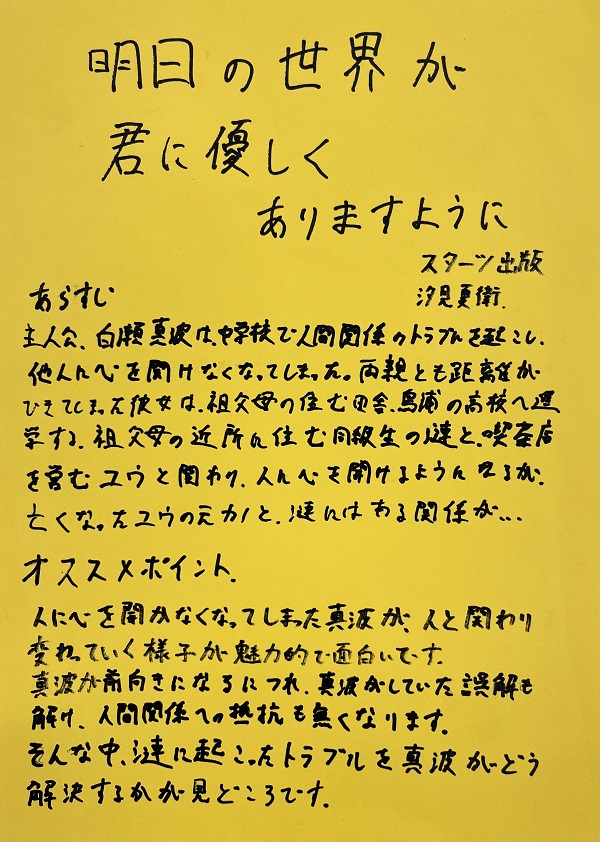 明日の世界が
君に優しく
ありますように
スターツ出版
汐見夏衛.
あらすじ
主人公、白瀬真波は、中学校で人間関係のトラブルを起こし、
他人に心を開けなくなってしまった。両親とも距離が
ひらてしまった彼女は、祖父母の住む田舎、鳥浦の高校へ進
学する。祖父母の近所に住む同級生の漣と、喫茶店
を営むユウと関わり、人に心を開けるようになるが、
亡くなったユウの元カノと、漣にはある関係が...
オススメポイント.
人に心を開かなくなってしまった真波が、人と関わり
変わっていく様子が魅力的で面白いです。
真波が前向きになるにつれ、真波がしていた誤解も
解け、人間関係への抵抗も無くなります。
そんな中、漣に起こったトラブルを真波がどう
解決するかが見どころです。